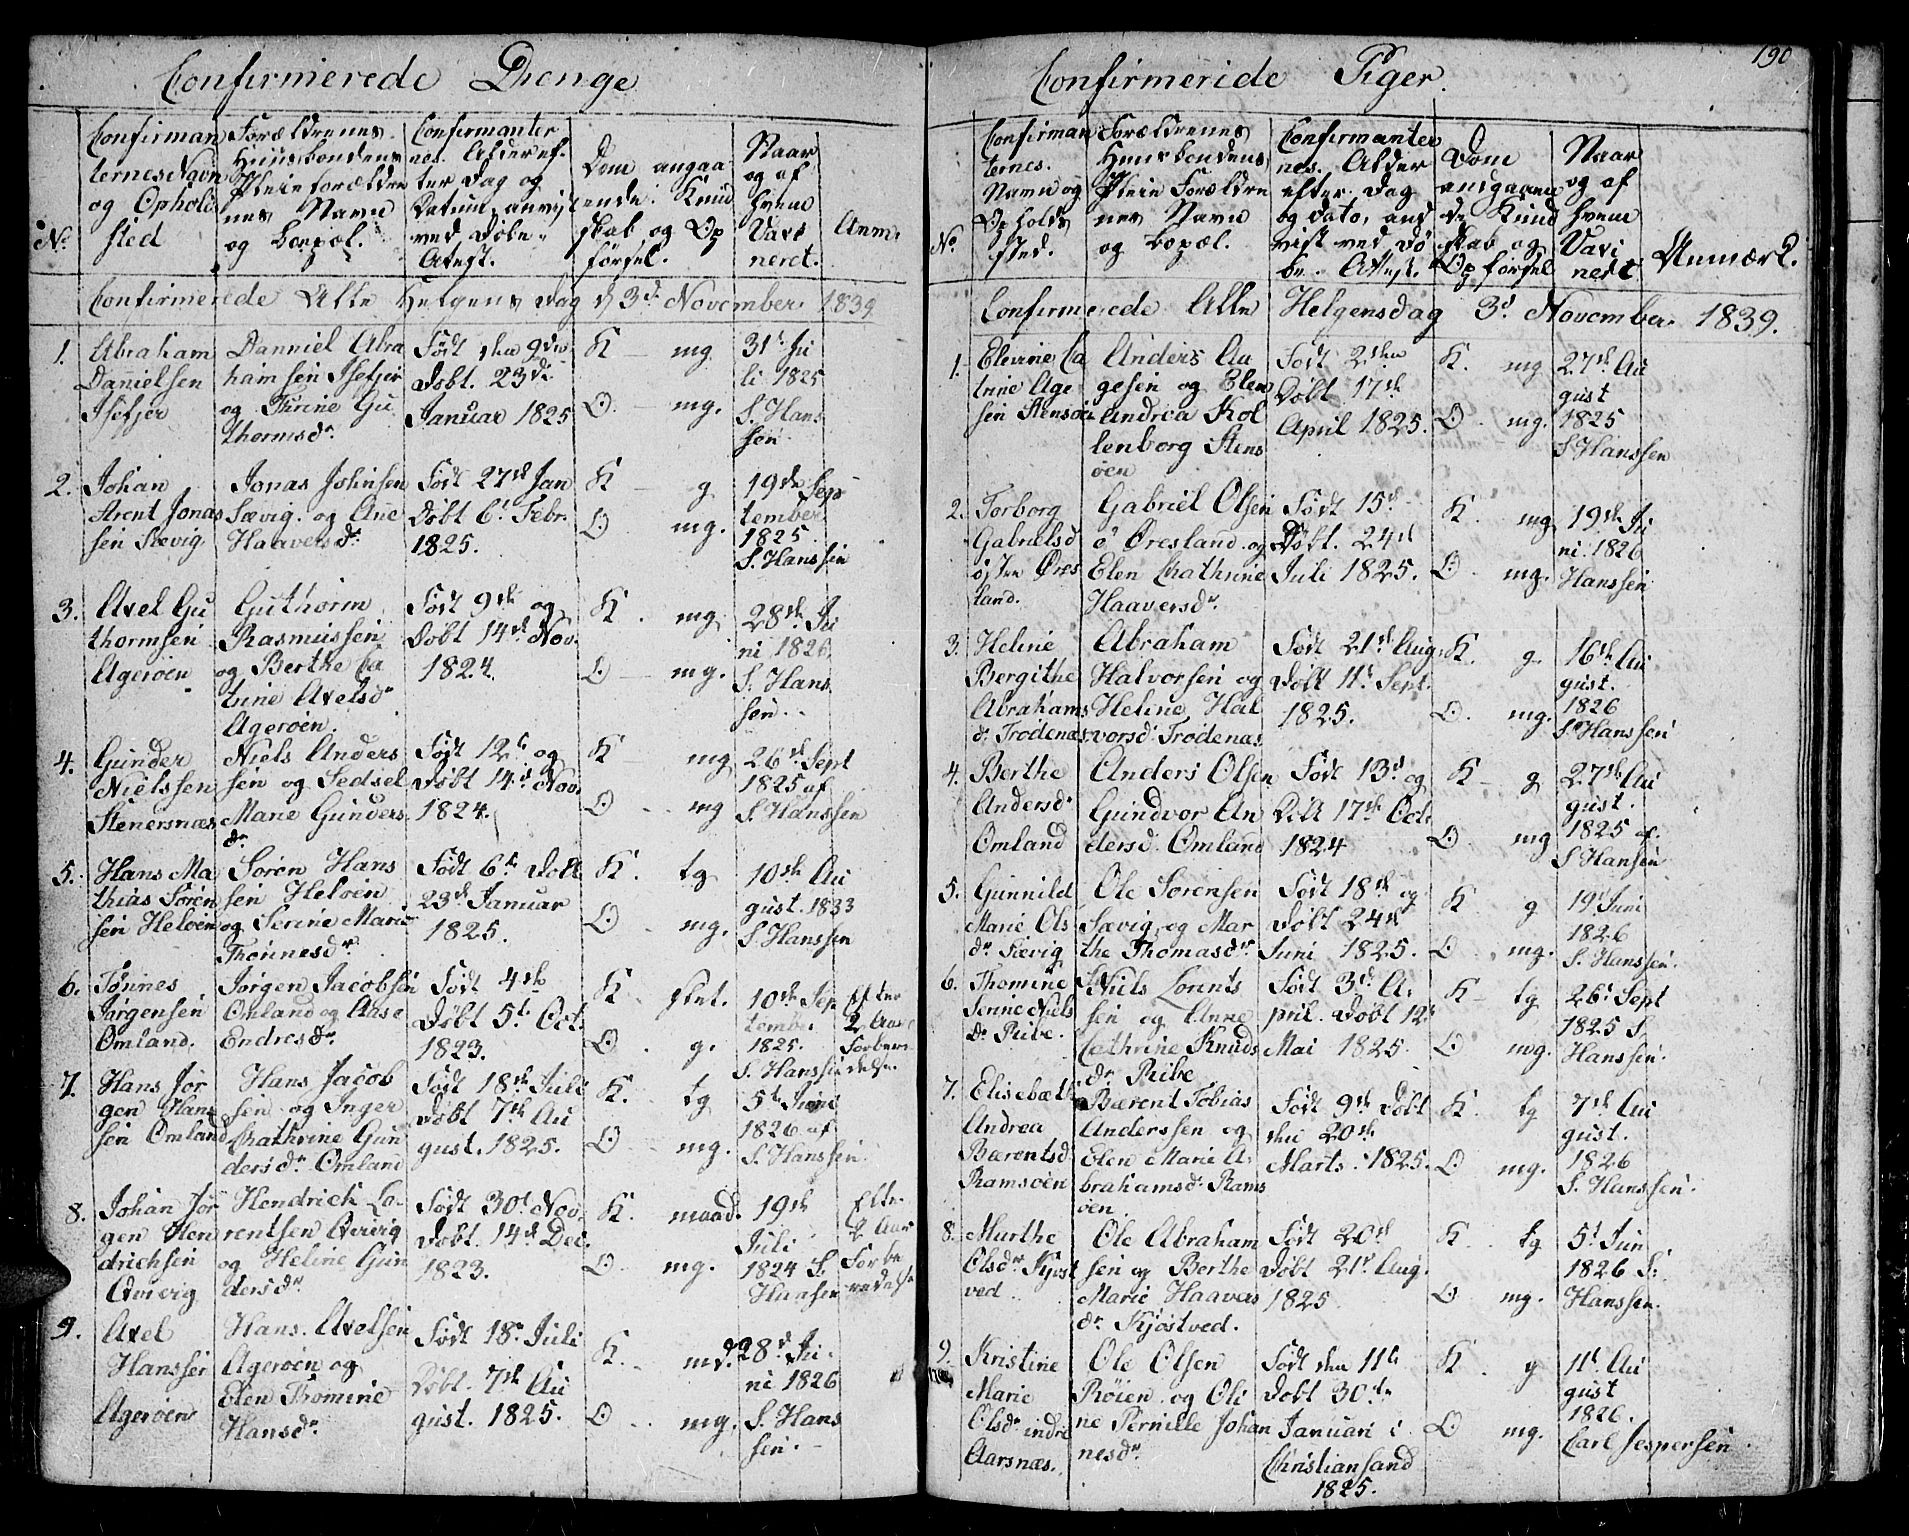 190
Confirmerede Drenge
No.
Confirman
ternes Navn
og Ophold
sted
Forældrenes
Huusbondens
Pleieforældre
nes Navn
og Bopæl.
Confirmanter
nes Alder ef-
ter Dag og
Datum, anviist
ved Døbe-
Attest.
Dom angaa
ende Kund
skab og Op
førsel.
Naar
og af
hvem
Vacci
neret.
Anm.
Confirmerede Alle Helgens Dag d 3d November 1839
1.
Abraham
Danielsen
Isefjer
Danniel Abra
hamsen Isefjer
og Thrine Gu
thormsdr.
Født den 9de
Døbt 23de
Januar 1825
K – mg
O. – mg.
31t Ju
li 1825
S. Hans
sen.
2.
Johan
Arent Jonas
sen Sævig
Jonas Johnsen
Sævig og Ane
Haaversdr.
Født 27de Jan
Døbt 6t Febr.
1825.
K – g
O mg.
19de Sep
tember
1825
S. Hanssen
3.
Axel Gu
thormsen
Agerøen
Guthorm
Rasmussen
og Berthe Ca
trine Axelsdr
Agerøen.
Født 9de og
Døbt 14de Nov.
1824.
K . mg
O – mg.
28de Ju
ni 1826
S. Hans
sen.
4.
Gunder
Nielssen
Stenersnæs
Niels Anders
sen og Sedsel
Marie Gunders
dr.
Født 12te og
Døbt 14de Nov.
1824.
K – mg
O . . mg
26de Sept
1825 af
S. Hanssen
5.
Hans Ma
thias Søren
sen Heløen
Søren Hans
sen Heløen
og Serine Marie
Thønnesdr.
Født 6te Døbt
23de Januar
1825.
K . tg
O . mg.
10de Au
gust. 1833
S. Hanssen
6.
Tønnes
Jørgensen
Omland.
Jørgen Jacobsen
Omland og Aase
Endresdr.
Født 4de
Døbt 5te Oct.
1823.
K . slet.
O . g.
10de Sep
tembr.
1825.
S. Hanssen
Efter
2 Aars
Forbere
delse.
7.
Hans Jør
gen Hans
sen Omland
Hans Jacob
sen og Inger
Cathrine Gun
dersdr Omland
Født 18de Juli
Døbt 7de Au
gust. 1825.
K. tg
O . mg.
5te Juni
1826 af
S. Hanssen.
8.
Johan Jør
gen Hen
drichsen
Qvivig
Hendrich Lo-
rentsen Qvivig
og Heline Gun
dersdr.
Født 30t Nov.
Døbt 14de Dec.
1823.
K. maad.
O . mg.
19de
Juli
1824 S.
Hanssen
Efter
2 Aar
Forbe
redelse
9.
Axel
Hanssen
Agerøen
Hans Axelsen
Agerøen og
Elen Thomine
Hansdr.
Født 18. Juli
Døbt 7de Au
gust. 1825.
K. md.
O . . mg.
28de Ju-
ni 1826
S. Hans
sen.
Confirmeride Piger.
No.
Confirman
ternes.
Navn og
Opholds
sted.
Forældrenes
Huusbondens
Pleie Forældre
nes Navn
og Bopæl.
Confirmanter
nes. Alder
efter Dag
og Dato, and
vist ved Dø
be. Attest.
Dom
andgaaen
de Kund
skab og
Opførsel
Naar
og af
hvem
Vaxi
neret
Anmærk.
Confirmerede Alle Helgensdag 3d November 1839.
1.
Elevine Ca
trine Age
sen Stensøe
Anders Au
gesen og Elen
Andrea Kol
lenborg Stens
øen
Født 2den
Døbt 17de
April 1825.
K. mg
O . mg.
27de Au
gust
1825
S. Hanssen
2.
Torborg
Gabrielsd
østre Øres
land.
Gabriel Olsen
ø Øresland og
Elen Chathrine
Haaversdr.
Født 15de
Døbt. 24de
Juli 1825.
K. mg
O . mg.
19de Ju
ni. 1826
Hanssen
3.
Heline
Bergithe
Abrahams
dr Trodenæs
Abraham
Halvorsen og
Heline Hal
vorsdr Trodenæs
Født 21de Aug.
Døbt 11t Sept.
1825.
K. g.
O. mg.
16de Au
gust.
1826
S. Hanssen
4.
Berthe
Andersdr
Omland
Anders Olsen
Gundvor An
dersd. Omland
Født 13d og
Døbt 17de Oct.
1824
K – g
O mg
27de Au
gust.
1825 af.
S. Hansen
5.
Gunnild
Marie Ols
dr. Sævig
Ole Sørensen
Sævig og Mar
the Thomasdr
Født 18de og
Døbt 24de
Juni 1825.
K g
O . mg.
19t Juni
1826
S. Hanssen.
6.
Thomine
Tonne Niels
dr Ribe.
Niels Lorents
sen og Anne
Cathrine Knuds
dr Ribe
Født 3de A-
pril. Døbt 12te
Mai 1825.
K – tg
O mg.
26t Sept
1825 S.
Hanssen.
7.
Elisebæth
Andrea
Bærentsd
Ramsøen
Bærent Tobias
Anderssen og
Elen Marie A-
brahamsdr Rams
øen.
Født 9de Døbt
den 20de
Marts. 1825.
K. tg
O mg.
7de Au
gust.
1826
S. Hanssen.
8.
Marthe
Olsdr Kjøst
ved
Ole Abraham
sen og Berthe
Marie Haavers
dr. Kjøstved.
Født 20de
Døbt 21de Aug.
1825
K . . tg
O . mg.
5t Jun
1826 S.
Hanssen.
9.
Kristine
Marie
Olsdr indre
Aarsnæs.
Ole Olsen
Røien og Oli
ne Pernille Johan
nesdr.
Født den 11te
Døbt 30te
Januari i
Christiansand
1825.
K . g
O mg.
11t Au
gust
1826.
Carl Jespersen